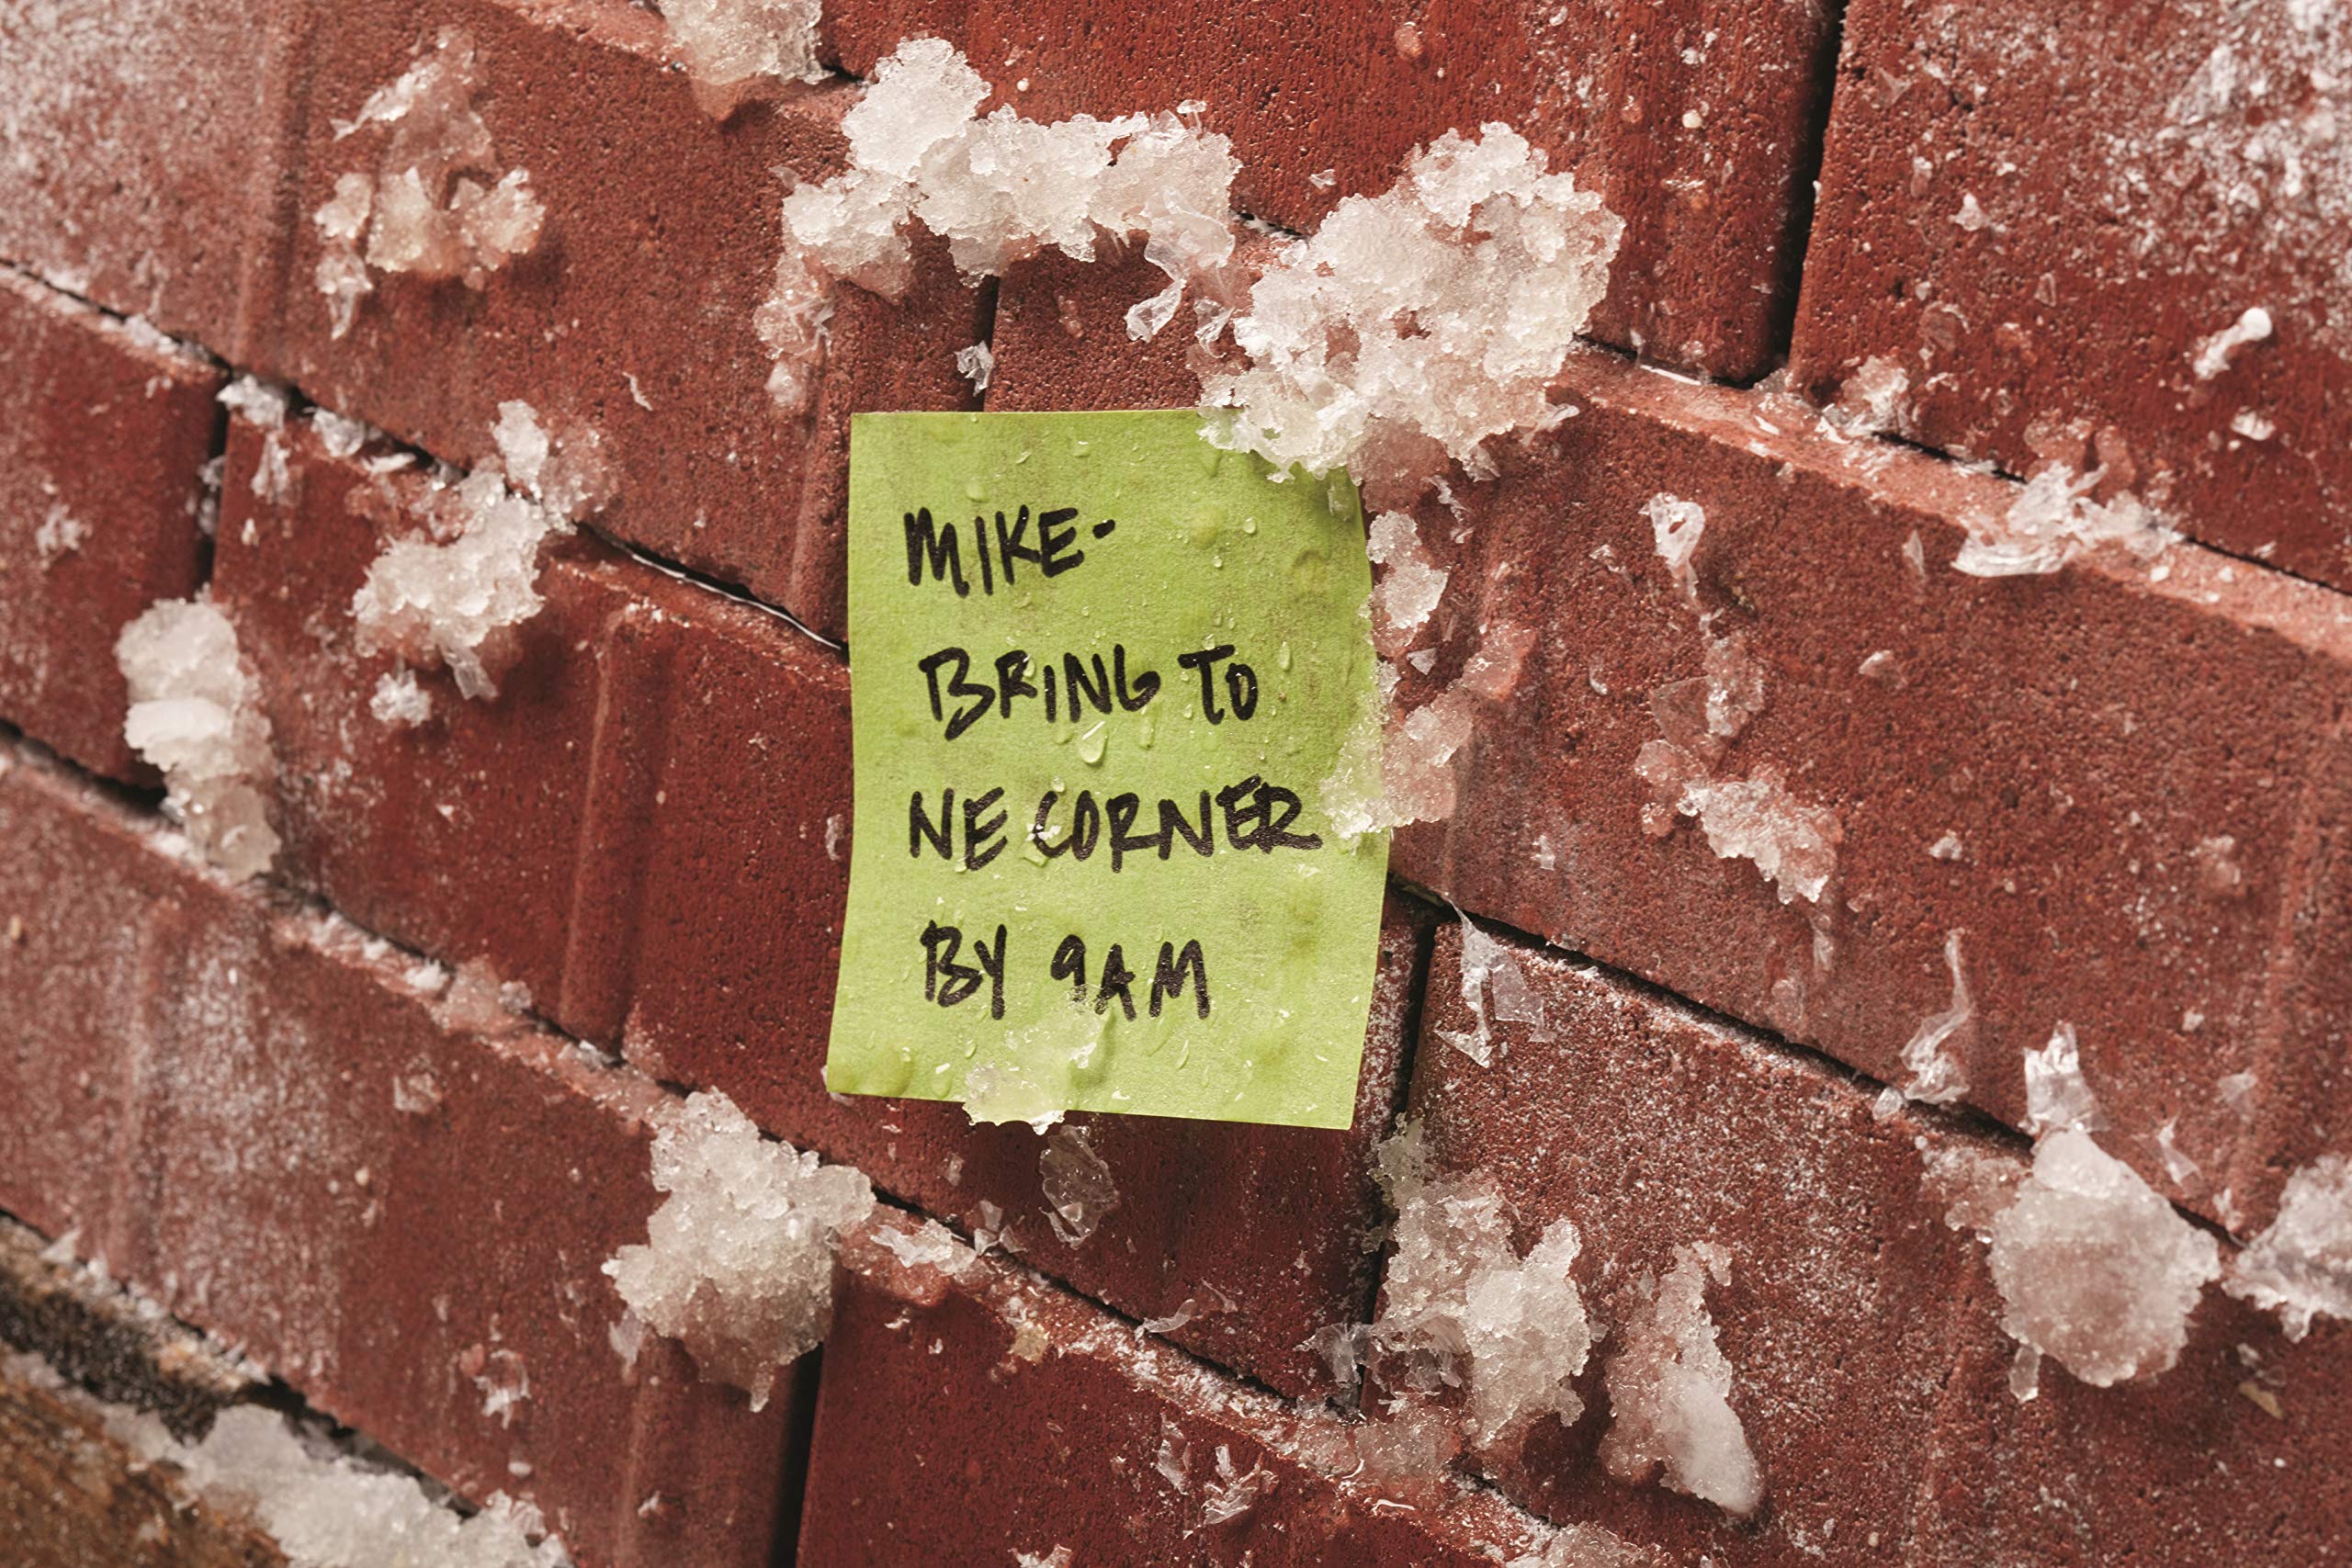 MIKE-
BRING TO
NE CORNER
BY 9AM